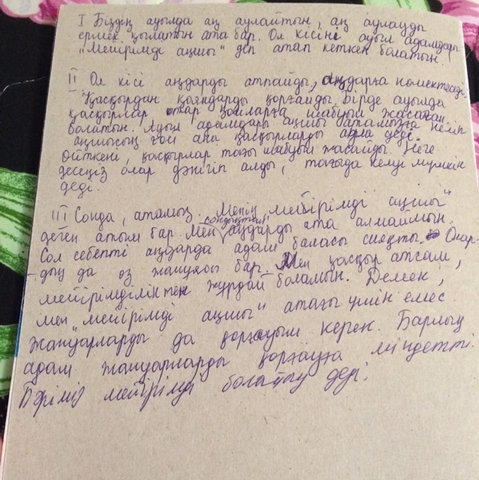 I Біздің ауылда аң аулайтын, аң аулауды
ермек қылатын ата бар. Ол кісіні ауыл адамдары
"Мейірімді аңшы" деп атап кеткен болатын.
II Ол кісі аңдарды атпайды, аңдарға көмектеседі.
Қасқырдан қояндарды қорғайды. Бірде ауылда
қасқырлар қойларға шабуыл жасаған
болатын. Ауыл адамдары аңшы атамызға келіп
аңшысың ғой ана қасқырларды ата деді.
Өйткені, қасқырлар тағы шабуыл жасайды. Неге
десеңіз олар дәнігіп алды, тағада келуі мүмкін
деді.
III Сонда, атамыз "Менің мейірімді аңшы"
деген атым бар. Мен сондықтан аңдарды ата алмаймын.
Сол себепті аңдарда адам баласы сияқты. Олар
дың да өз жанұясы бар. Мен қасқыр атсам,
мейірімділіктен жұрдай боламын. Демек,
мен "мейірімді аңшы" атағы үшін емес
жануарларды да қорғауым керек. Барлық
адам жануарларды қорғауға міндетті.
Бәріміз мейірімді болайық деді.